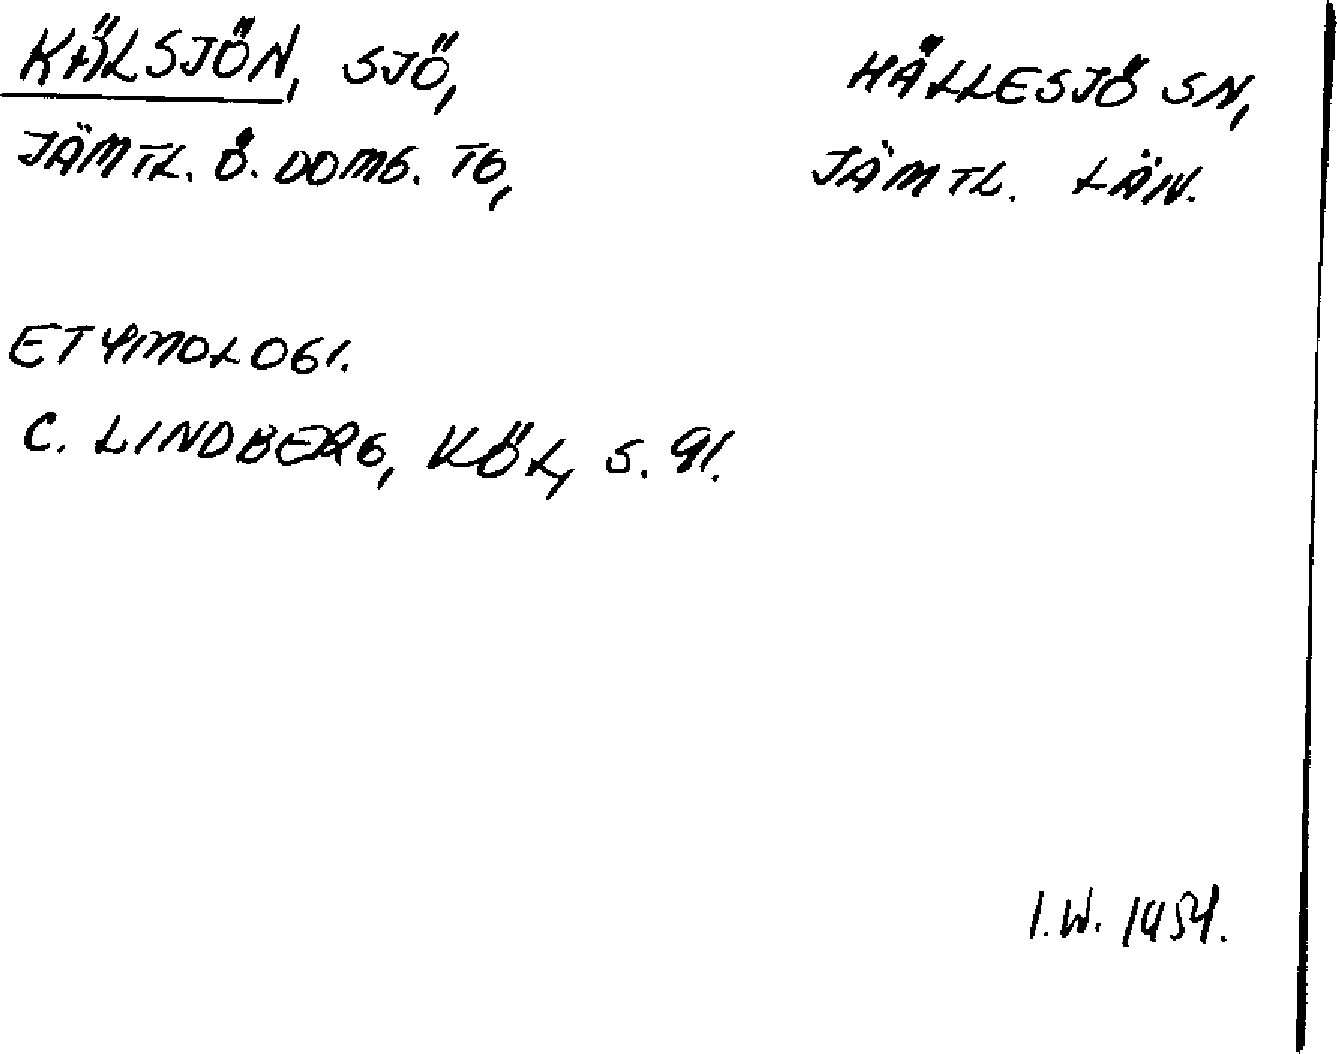 KÄLSJÖN, SJÖ, HÄLLESJÖ SN,
JÄMTL. Ö. DOMS. TG, JÄMTL. LÄN.
ETYMOLOGI.
C. LINDBERG, KÖL, S. 91.
I.W. 1954.